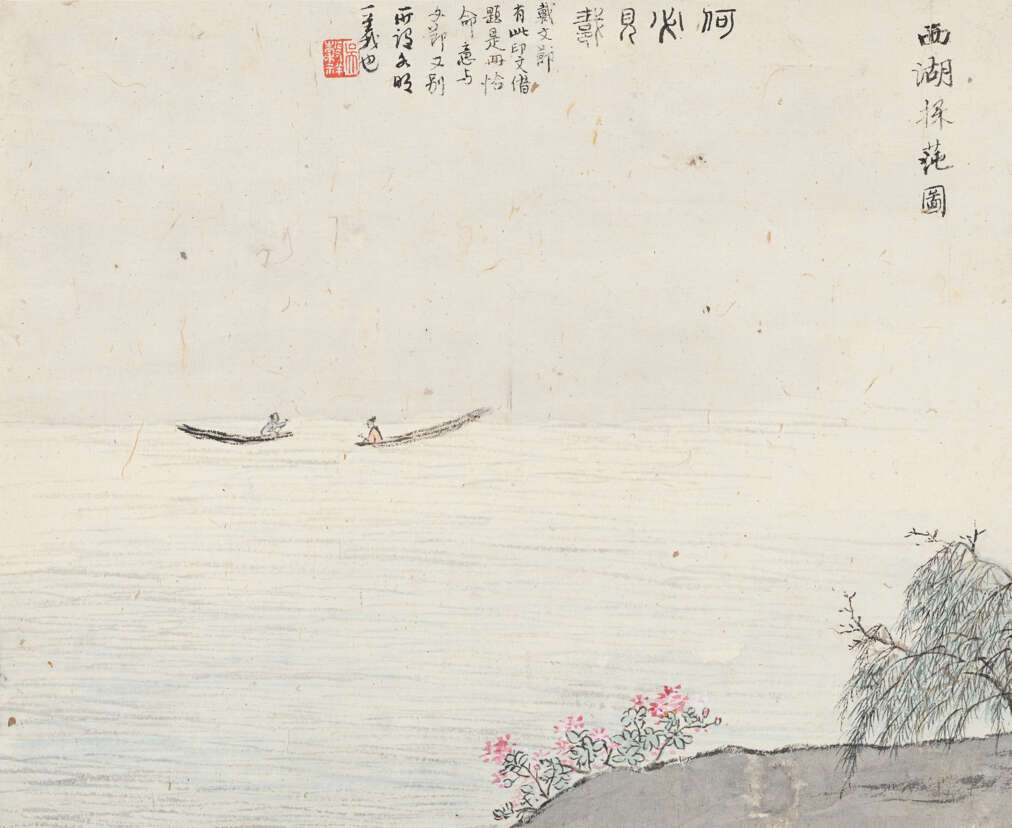 西湖採蒓圖
何必見戴
戴文節
有此印文借
題是冊恰
命意与
文節又別
所謂各明
一義也